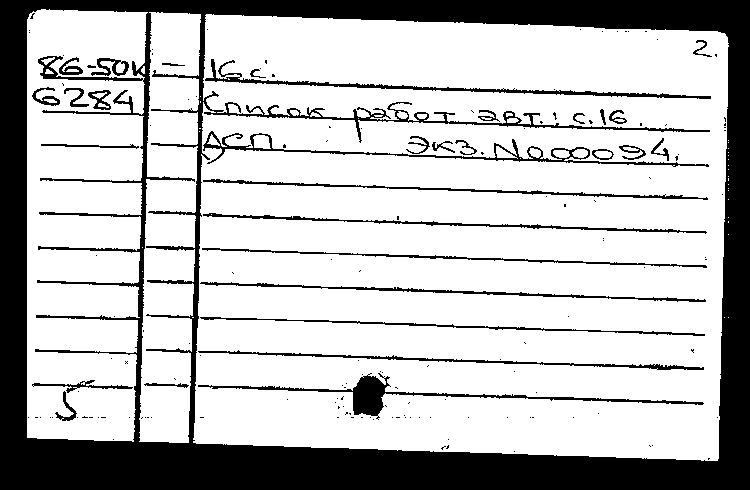 2.
86-50к. — 16 с.
6284 Список работ авт.: с. 16.
ДСП. Экз. N000094.
5